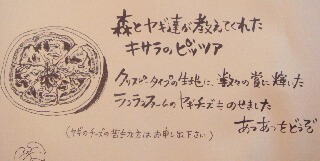 森とヤギ達が教えてくれた
キサラのピッツア
クリスピータイプの生地に、数々の賞に輝いた
ランランファームのヤギチーズをのせました
あつあつをどうぞ
(ヤギのチーズの苦手な方はお申し出下さい)